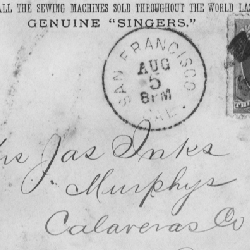 ALL THE SEWING MACHINES SOLD THROUGHOUT THE WORLD LAS
GENUINE "SINGERS."
SAN FRANCISCO
AUG
5
8PM
CAL.
Mrs Jas Inks
Murphys
Calaveras Co